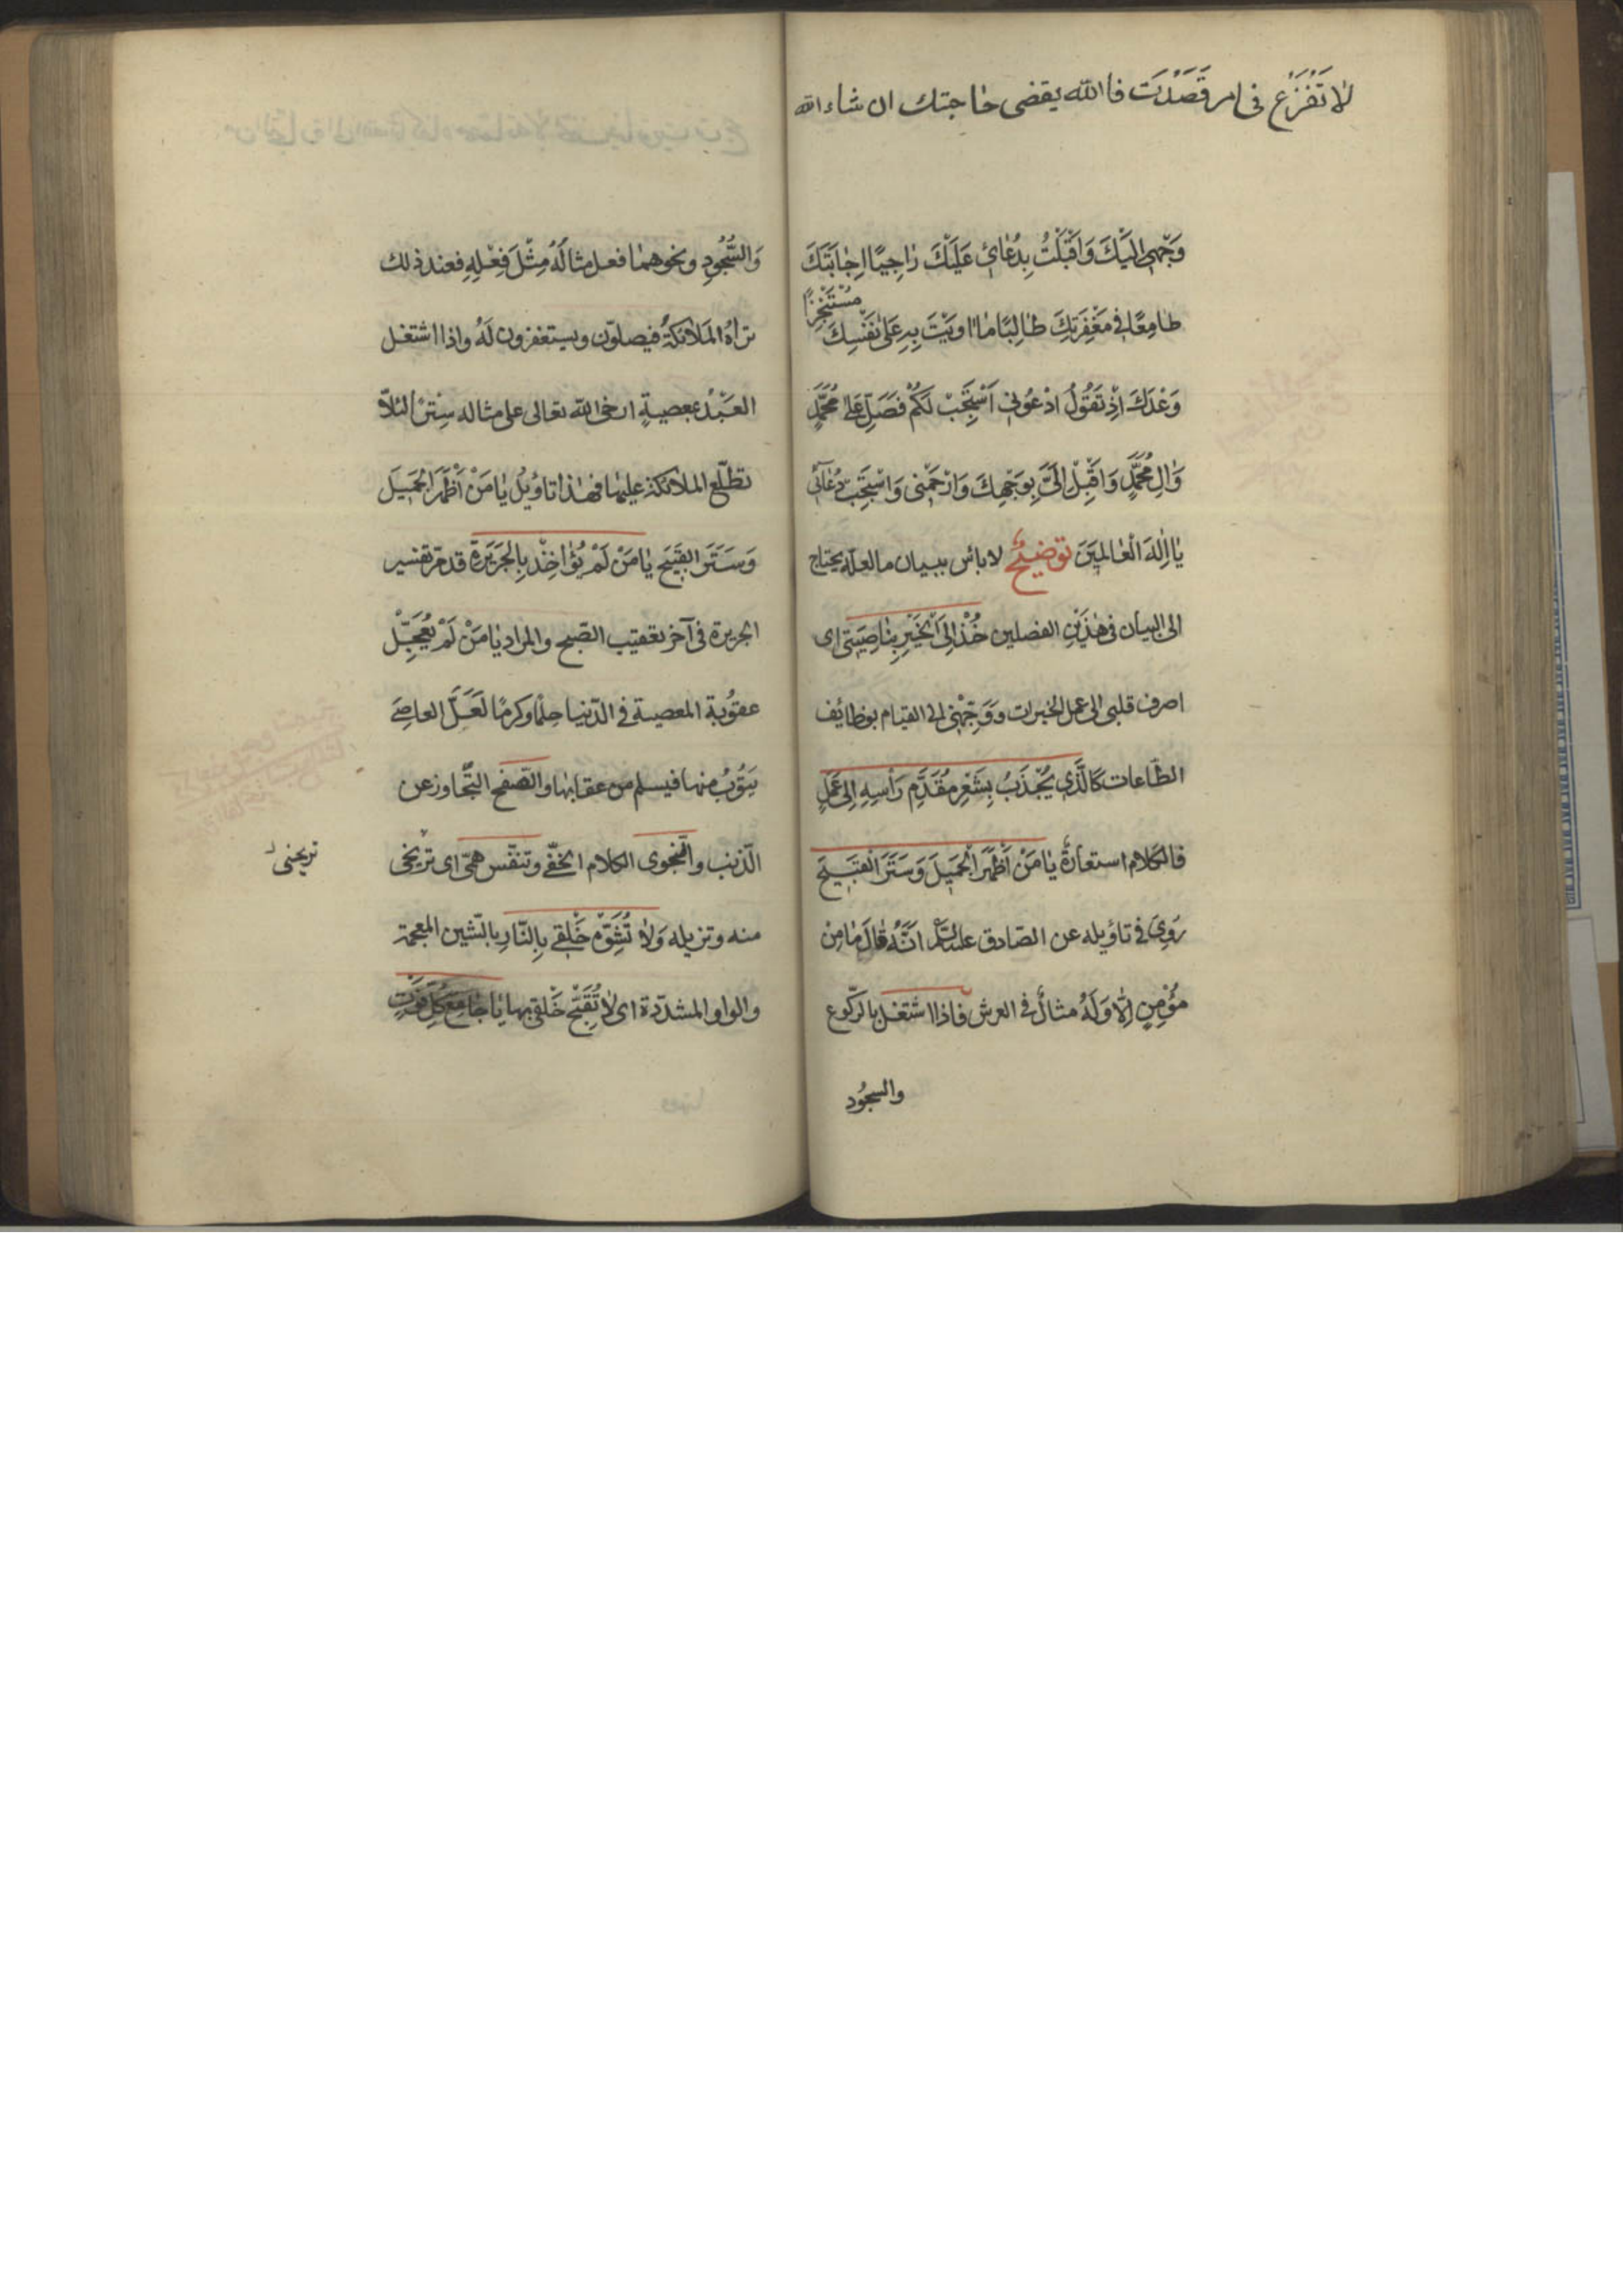 لا تَفْزَعْ فى امر قَصَدْتَ فا الله يقضى حاجتك ان شاء الله
وَجْهِى اِلَيْكَ وَاَقْبَلْتُ بِدُعَائى عَلَيْكَ رَاجِيًا اِجَابَتَكَ
طامِعًا فى مَغْفِرَتِكَ طالِبًا ما اوَيْتَ بِهِ عَلى نَفْسِكَ
مُسْتَنْجِزًا
وَعْدَكَ اِذْ تَقُولُ ادْعُونى اَسْتَجِبْ لَكُمْ فَصَلِّ عَلى مُحَمَّدٍ
وَالِ مُحَمَّدٍ وَاَقْبِلْ اِلَىَّ بِوَجْهِكَ وَارْحَمْنى وَاسْتَجِبْ دُعآئى
يا اِلهَ الْعالَمِينَ توضيح لا باس ببيان ما لعله يحتاج
الى البيان فى هٰذَيْنِ الفصلين خُذْ اِلَى الْخَيْرِ بِناصِيَتى اى
اصرف قلبى الى عمل الخيرات وَوَجِّهْنى الى القيام بوظائف
الطّاعات كَالَّذى يُجْذَبُ بِشَعْرِ مُقَدَّمِ رَأسِهِ اِلى عَمَلٍ
فالكلام استعارةٌ يا مَنْ اَظْهَرَ الْجَمِيلَ وَسَتَرَ الْقَبِيحَ
رُوِىَ فى تاويله عن الصّادق عليه السلام اَنَّهُ قالَ ما مِنْ
مُؤْمِنٍ اِلّا وَلَهُ مثالٌ فى العرش فاذا اشتغل بالرّكوع
والسجُود
وَالسُّجُودِ ونحوهما فعل مثالُهُ مِثْلَ فِعْلِهِ فعند ذلك
تراهُ المَلائكةُ فيصلّون ويستغفرون لَهُ واذا اشتغل
العَبْدُ بمعصيةٍ ارخى الله تعالى على مثاله سِترًا لئلّا
تطّلع الملائكة عليها فهذا تاويلُ يا مَنْ اَظْهَرَ الْجَمِيلَ
وَسَتَرَ القَبِيحَ يا مَنْ لَمْ يُؤاخِذْ بِالْجَرِيرَةِ قد مرّ تفسير
الجريرة فى آخر تعقيب الصّبح والمراد يا مَنْ لَمْ يُعَجِّلْ
عقوبة المعصية فى الدّنيا حِلْمًا وكرمًا لَعَلَّ العاصى
يَتُوبُ منها فيسلم من عقابها والصّفح التّجاوز عن
الذّنب والنّجوى الكلام الخفّى وتنفّس همّى اى تريحى
تريحنى
منه وتزيله وَلا تُشَوِّه خَلْقى بِالنّارِ بالشّين المعجمة
والواو المشدّدة اى لا تُقَبِّح خَلْقى بها يا جامِعَ كُلِّ فَوْتٍ